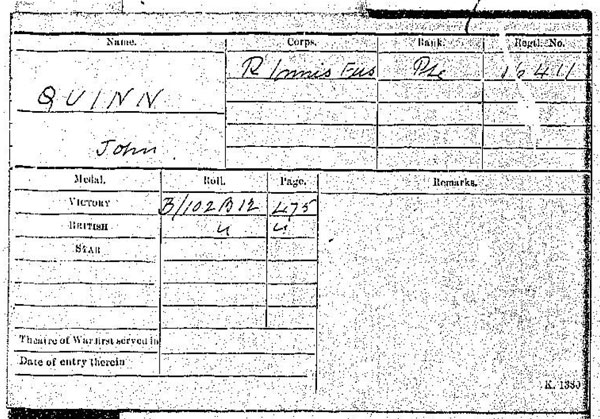 Name. Corps. Rank. Regtl. No.
R Innis Fus Pte 16411
QUINN
John.
Medal. Roll. Page. Remarks.
VICTORY B/102B12 475
BRITISH " "
STAR
Theatre of War first served in
Date of entry therein
K. 1380